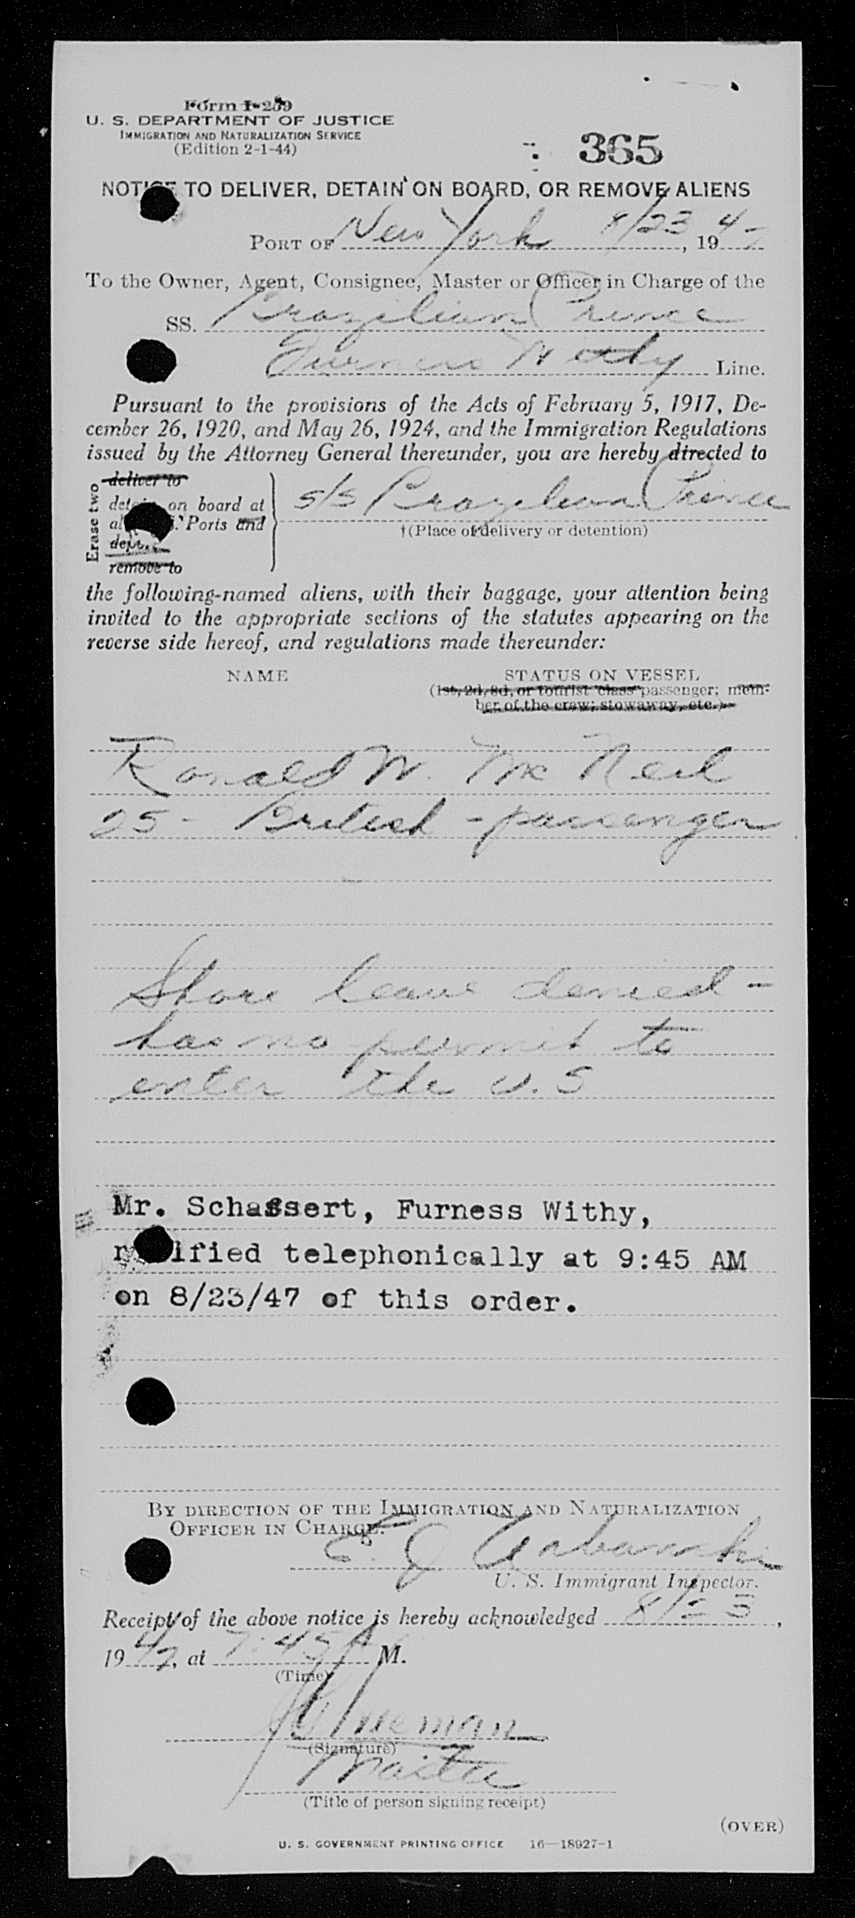 Form I-259
U. S. DEPARTMENT OF JUSTICE
IMMIGRATION AND NATURALIZATION SERVICE
(Edition 2-1-44)
365
NOTICE TO DELIVER, DETAIN ON BOARD, OR REMOVE ALIENS
PORT OF New York 8/23, 1947
To the Owner, Agent, Consignee, Master or Officer in Charge of the
SS. Brazilian Prince
Furness Withy Line.
Pursuant to the provisions of the Acts of February 5, 1917, De-
cember 26, 1920, and May 26, 1924, and the Immigration Regulations
issued by the Attorney General thereunder, you are hereby directed to
Erase two
deliver to
detain on board at s/s Brazilian Prince
Ports and
†(Place of delivery or detention)
remove to
the following-named aliens, with their baggage, your attention being
invited to the appropriate sections of the statutes appearing on the
reverse side hereof, and regulations made thereunder:
NAME STATUS ON VESSEL
(1st, 2d, 3d, or tourist class passenger; mem-
ber of the crew; stowaway, etc.)
Ronald W. Mc Neil
25 - British - passenger
Shore leave denied -
has no permit to
enter the U.S
Mr. Schassert, Furness Withy,
notified telephonically at 9:45 AM
on 8/23/47 of this order.
BY DIRECTION OF THE IMMIGRATION AND NATURALIZATION
OFFICER IN CHARGE.
E. J. Urbanski
U. S. Immigrant Inspector.
Receipt of the above notice is hereby acknowledged 8/23,
1947, at 7:45 A M.
(Time)
(Signature)
Master
(Title of person signing receipt)
(OVER)
U. S. GOVERNMENT PRINTING OFFICE 16—18927-1